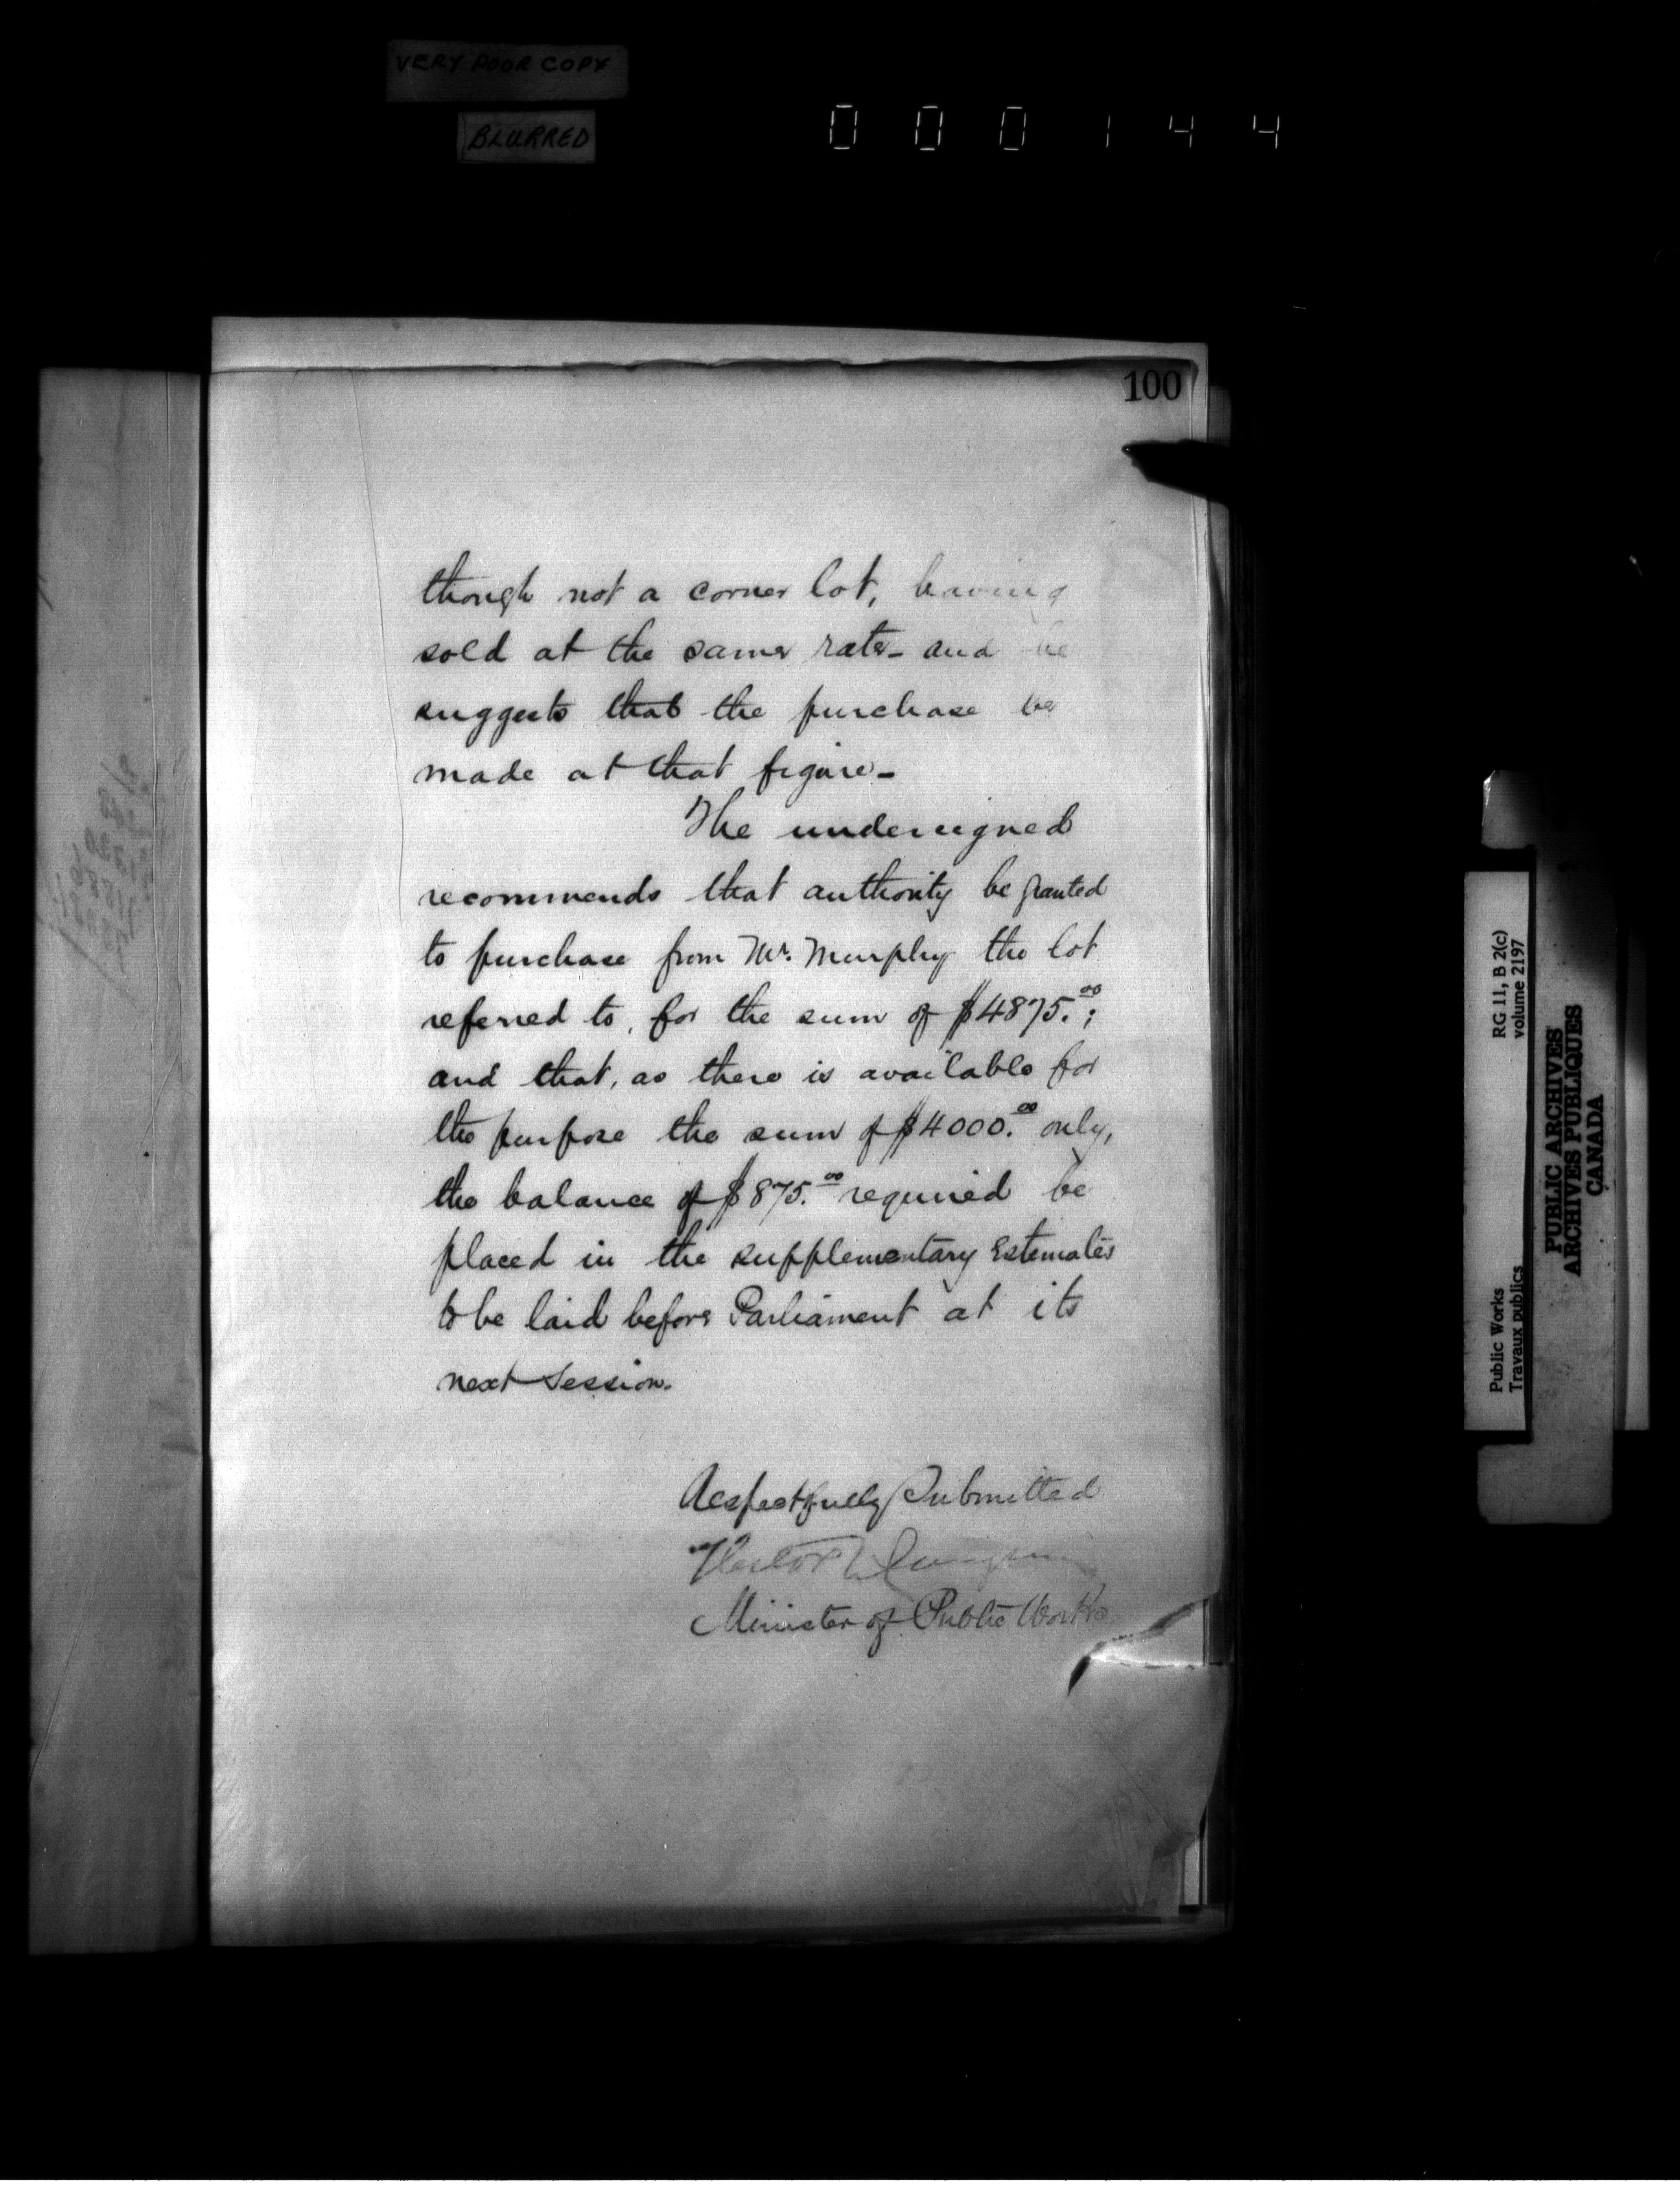 VERY POOR COPY
BLURRED
000144
100
though not a corner lot, having
sold at the same rate - and he
suggests that the purchase be
made at that figure -
The undersigned
recommends that authority be granted
to purchase from Mr. Murphy the lot
referred to, for the sum of $4875.00;
and that, as there is available for
the purpose the sum of $4000.00 only,
the balance of $875.00 required be
placed in the supplementary Estimates
to be laid before Parliament at its
next session.
Respectfully Submitted
Hector L Langevin
Minister of Public Works
RG 11, B 2(c)
volume 2197
Public Works
Travaux publics
PUBLIC ARCHIVES
ARCHIVES PUBLIQUES
CANADA